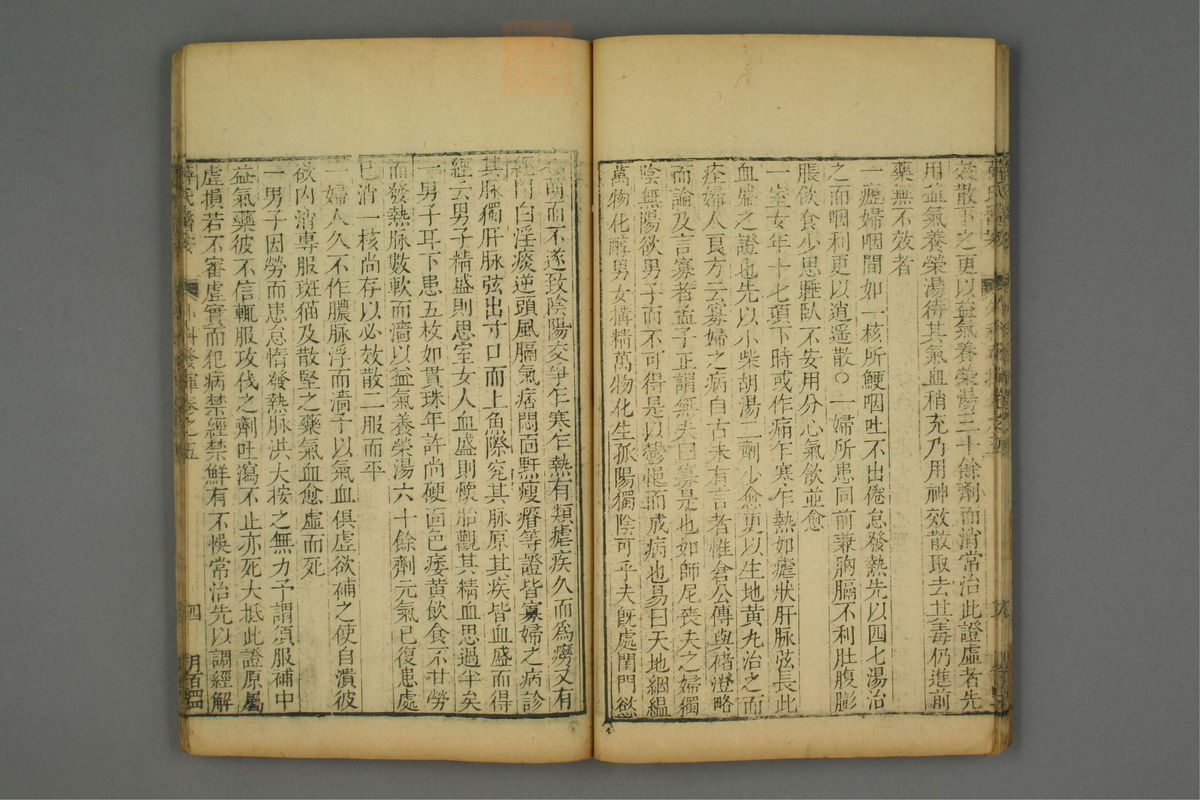 效散下之更以益氣養榮湯三十餘劑而消常治此證虛者先
用益氣養榮湯待其氣血稍充乃用神效散取去其毒仍進前
藥無不效者
一尼婦咽間如一核所鯁咽吐不出倦怠發熱先以四七湯治
之而咽利更以逍遥散○一婦所患同前兼胸膈不利肚腹膨
脹飲食少思睡臥不安用分心氣飲並愈
一室女年十七項下時或作痛乍寒乍熱如瘧狀肝脉弦長此
血盛之證也先以小柴胡湯二劑少愈更以生地黄丸治之而
痊婦人良方云寡婦之病自古未有言者惟倉公傳與褚澄略
而論及言寡者孟子正謂無夫曰寡是也如師尼喪夫之婦獨
陰無陽欲男子而不可得是以鬱悒而成病也易曰天地絪緼
萬物化醇男女搆精萬物化生孤陽獨陰可乎夫旣處閨門慾
心萌而不遂致陰陽交爭乍寒乍熱有類瘧疾久而爲癆又有
經閉白淫痰逆頭風膈氣痞悶面䵟瘦瘠等證皆寡婦之病診
其脉獨肝脉弦出寸口而上魚際究其脉原其疾皆血盛而得
經云男子精盛則思室女人血盛則懷胎觀其精血思過半矣
一男子耳下患五枚如貫珠年許尚硬面色痿黄飲食不甘勞
而發熱脉數軟而濇以益氣養榮湯六十餘劑元氣已復患處
已消一核尚存以必效散二服而平
一婦人久不作膿脉浮而濇予以氣血俱虛欲補之使自潰彼
欲内消專服斑猫及散堅之藥氣血愈虛而死
一男子因勞而患怠惰發熱脉洪大按之無力予謂須服補中
益氣藥彼不信輒服攻伐之劑吐瀉不止亦死大抵此證原屬
虛損若不審虛實而犯病禁經禁鮮有不悞常治先以調經解
薛氏醫案 卷之五 四